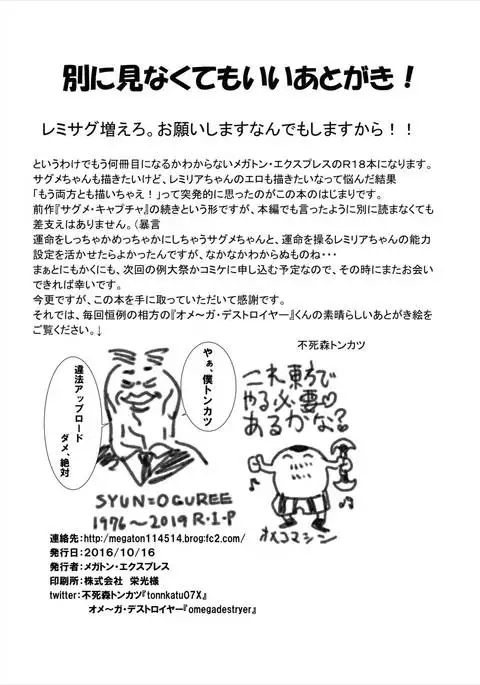 別に見なくてもいいあとがき！
レミサグ増えろ。お願いしますなんでもしますから！！
というわけでもう何冊目になるかわからないメガトン・エクスプレスのＲ１８本になります。
サグメちゃんも描きたいけど、レミリアちゃんのエロも描きたいなって悩んだ結果
「もう両方とも描いちゃえ！」って突発的に思ったのがこの本のはじまりです。
前作『サグメ・キャプチャ』の続きという形ですが、本編でも言ったように別に読まなくても
差支えはありません。（暴言
運命をしっちゃかめっちゃかにしちゃうサグメちゃんと、運命を操るレミリアちゃんの能力
設定を活かせたらよかったんですが、なかなかわからぬものね・・・
まぁとにもかくにも、次回の例大祭かコミケに申し込む予定なので、その時にまたお会い
できれば幸いです。
今更ですが、この本を手に取っていただいて感謝です。
それでは、毎回恒例の相方の『オメ～ガ・デストロイヤー』くんの素晴らしいあとがき絵を
ご覧ください。↓
不死森トンカツ
やぁ、僕トンカツ
違法アップロード
ダメ、絶対
これ東方で
やる必要♡
あるかな？
SYUN=OGUREE
1976～2019 R・I・P
オメコマシン
連絡先:http:/megaton114514.brog:fc2.com/
発行日:2016/10/16
発行者:メガトン・エクスプレス
印刷所:株式会社　栄光様
twitter:不死森トンカツ『tonnkatu07X』
オメ～ガ・デストロイヤー『omegadestryer』